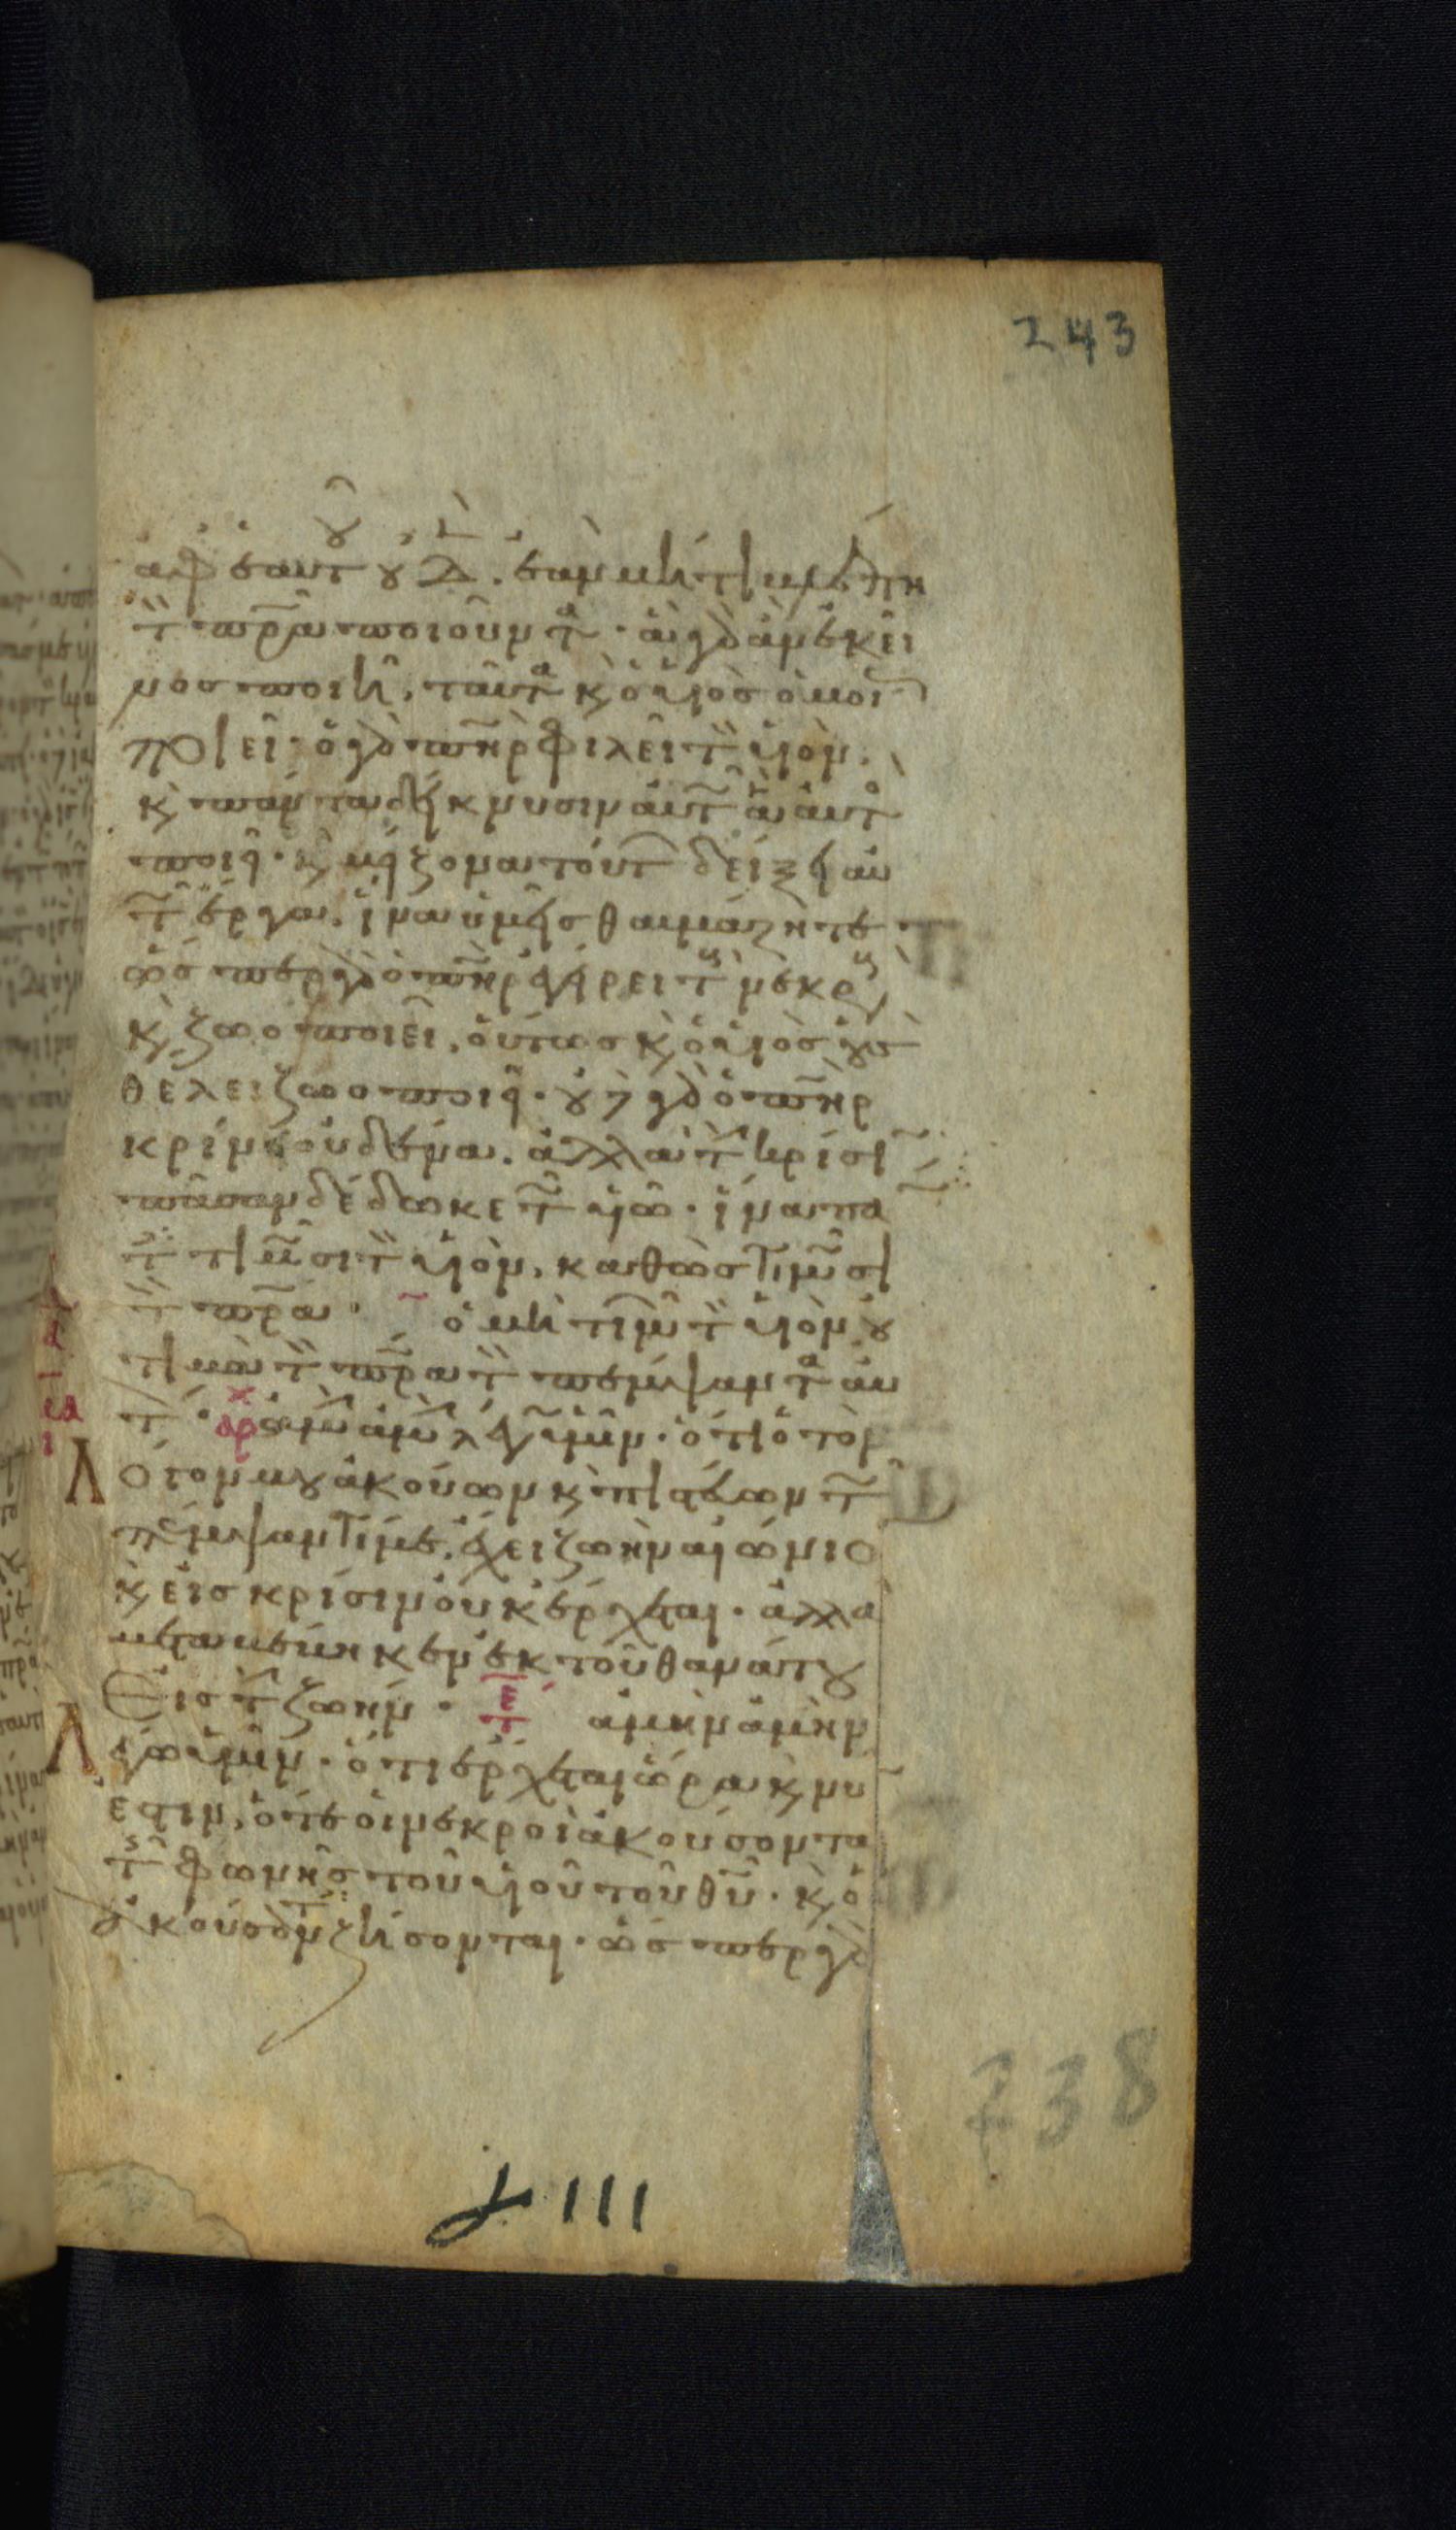 243
ἀφ ἑαυτοῦ οὐδὲν. ἐὰν μή τι βλέπη
τὸν πρ̅α ποιοῦντα· ἃ γὰρ ἂν ἐκεῖ
νος ποιῆ, ταῦτα κ̀ ὁ υἱὸς ὁμοίως
ποιεῖ· ὁ γὰρ πη̅ρ φιλεῖ τὸν υἱὸν.
κ̀ πάντα δείκνυσιν αὐτῶ ἃ αὐτὸς
ποιεῖ· κ̀ μείζονα τούτων δείξει αὐ
τῶ ἔργα. ἵνα ὑμεῖς θαυμάζητε
ὥσπερ γὰρ ὁ πη̅ρ ἐγείρει τοὺς νεκροὺς
κ̀ ζωοποιεῖ, οὕτως κ̀ ὁ υἱὸς οὓς
θέλει ζωοποιεῖ· οὐδὲ γὰρ ὁ πη̅ρ
κρίνει οὐδένα. ἀλλὰ τὴν κρίσιν
πᾶσαν δέδωκε τῶ υἱῶ· ἵνα πάν
τες τιμῶσι τὸν υἱὸν, καθὼς τιμῶσι
τὸν πρ̅α· ὁ μὴ τιμῶν τὸν υἱὸν οὐ
τιμᾶ τὸν πρ̅α τὸν πέμψαντα αὐ
τόν· ἀρχ ἀμὴν ἀμὴν λέγω ὑμῖν· ὅτι ὁ τὸν
λόγον μου ἀκούων κ̀ πιστεύων τῶ
πέμψαντί με, ἔχει ζωὴν αἰώνιο
κ̀ εἰς κρίσιν οὐκ ἔρχεται· ἀλλὰ
μεταβέβηκεν ἐκ τοῦ θανάτου
Εἰς τὴν ζωήν· τε ἀμὴν ἀμὴν
λέγω ὑμῖν· ὅτι ἔρχεται ὥρα κ̀ νῦν
ἐστιν, ὅτε οἱ νεκροὶ ἀκούσοντα
τῆς φωνῆς τοῦ υἱοῦ τοῦ θυ̅· κ̀ οἱ
ἀκούσοντες ζήσονται· ὥσπερ γὰρ
238
111